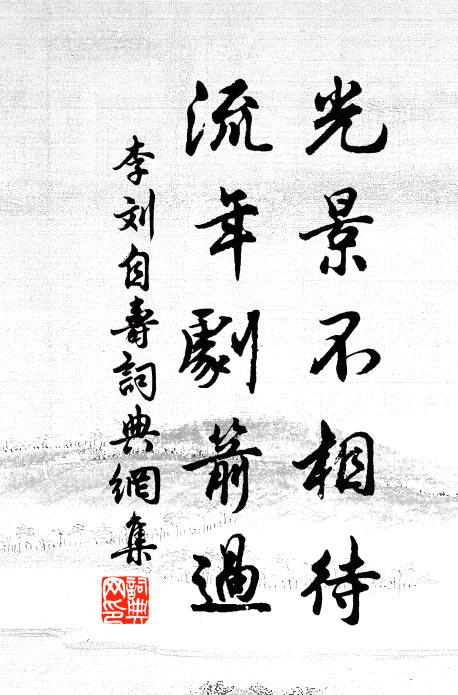 光景不相待
流年劇箭過
李刘自壽詞典網集
詞典网印